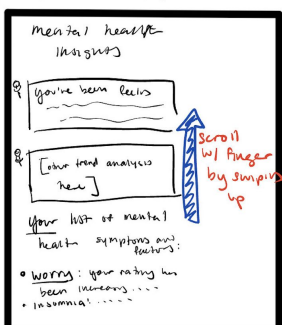 mental health
insights
you've been feeling
[other trend analysis
here]
scroll
w/ finger
by swiping
up
your list of mental
health symptoms and
factors:
• worry: your rating has
been increasing....
• insomnia: .....